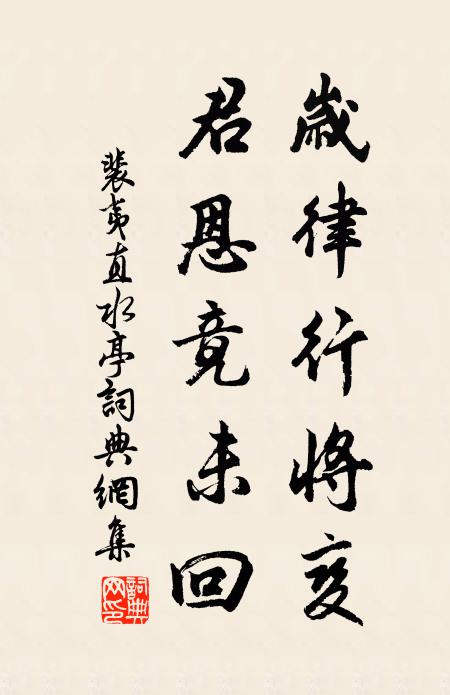 歲律行將變
君恩竟未回
裴夷直水亭詞典網集
詞典網印